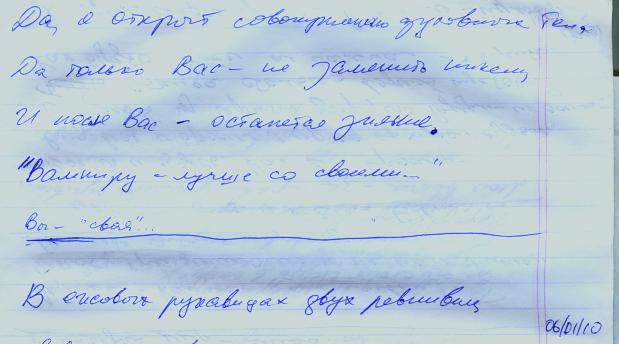 Да, я открыт
Да только Вас - не заменить никем,
И после Вас - останется зияние.
"Вампиру - лучше со своими..."
Вы - "своя"...
В ежовых рукавицах двух ревнивиц
06/01/10